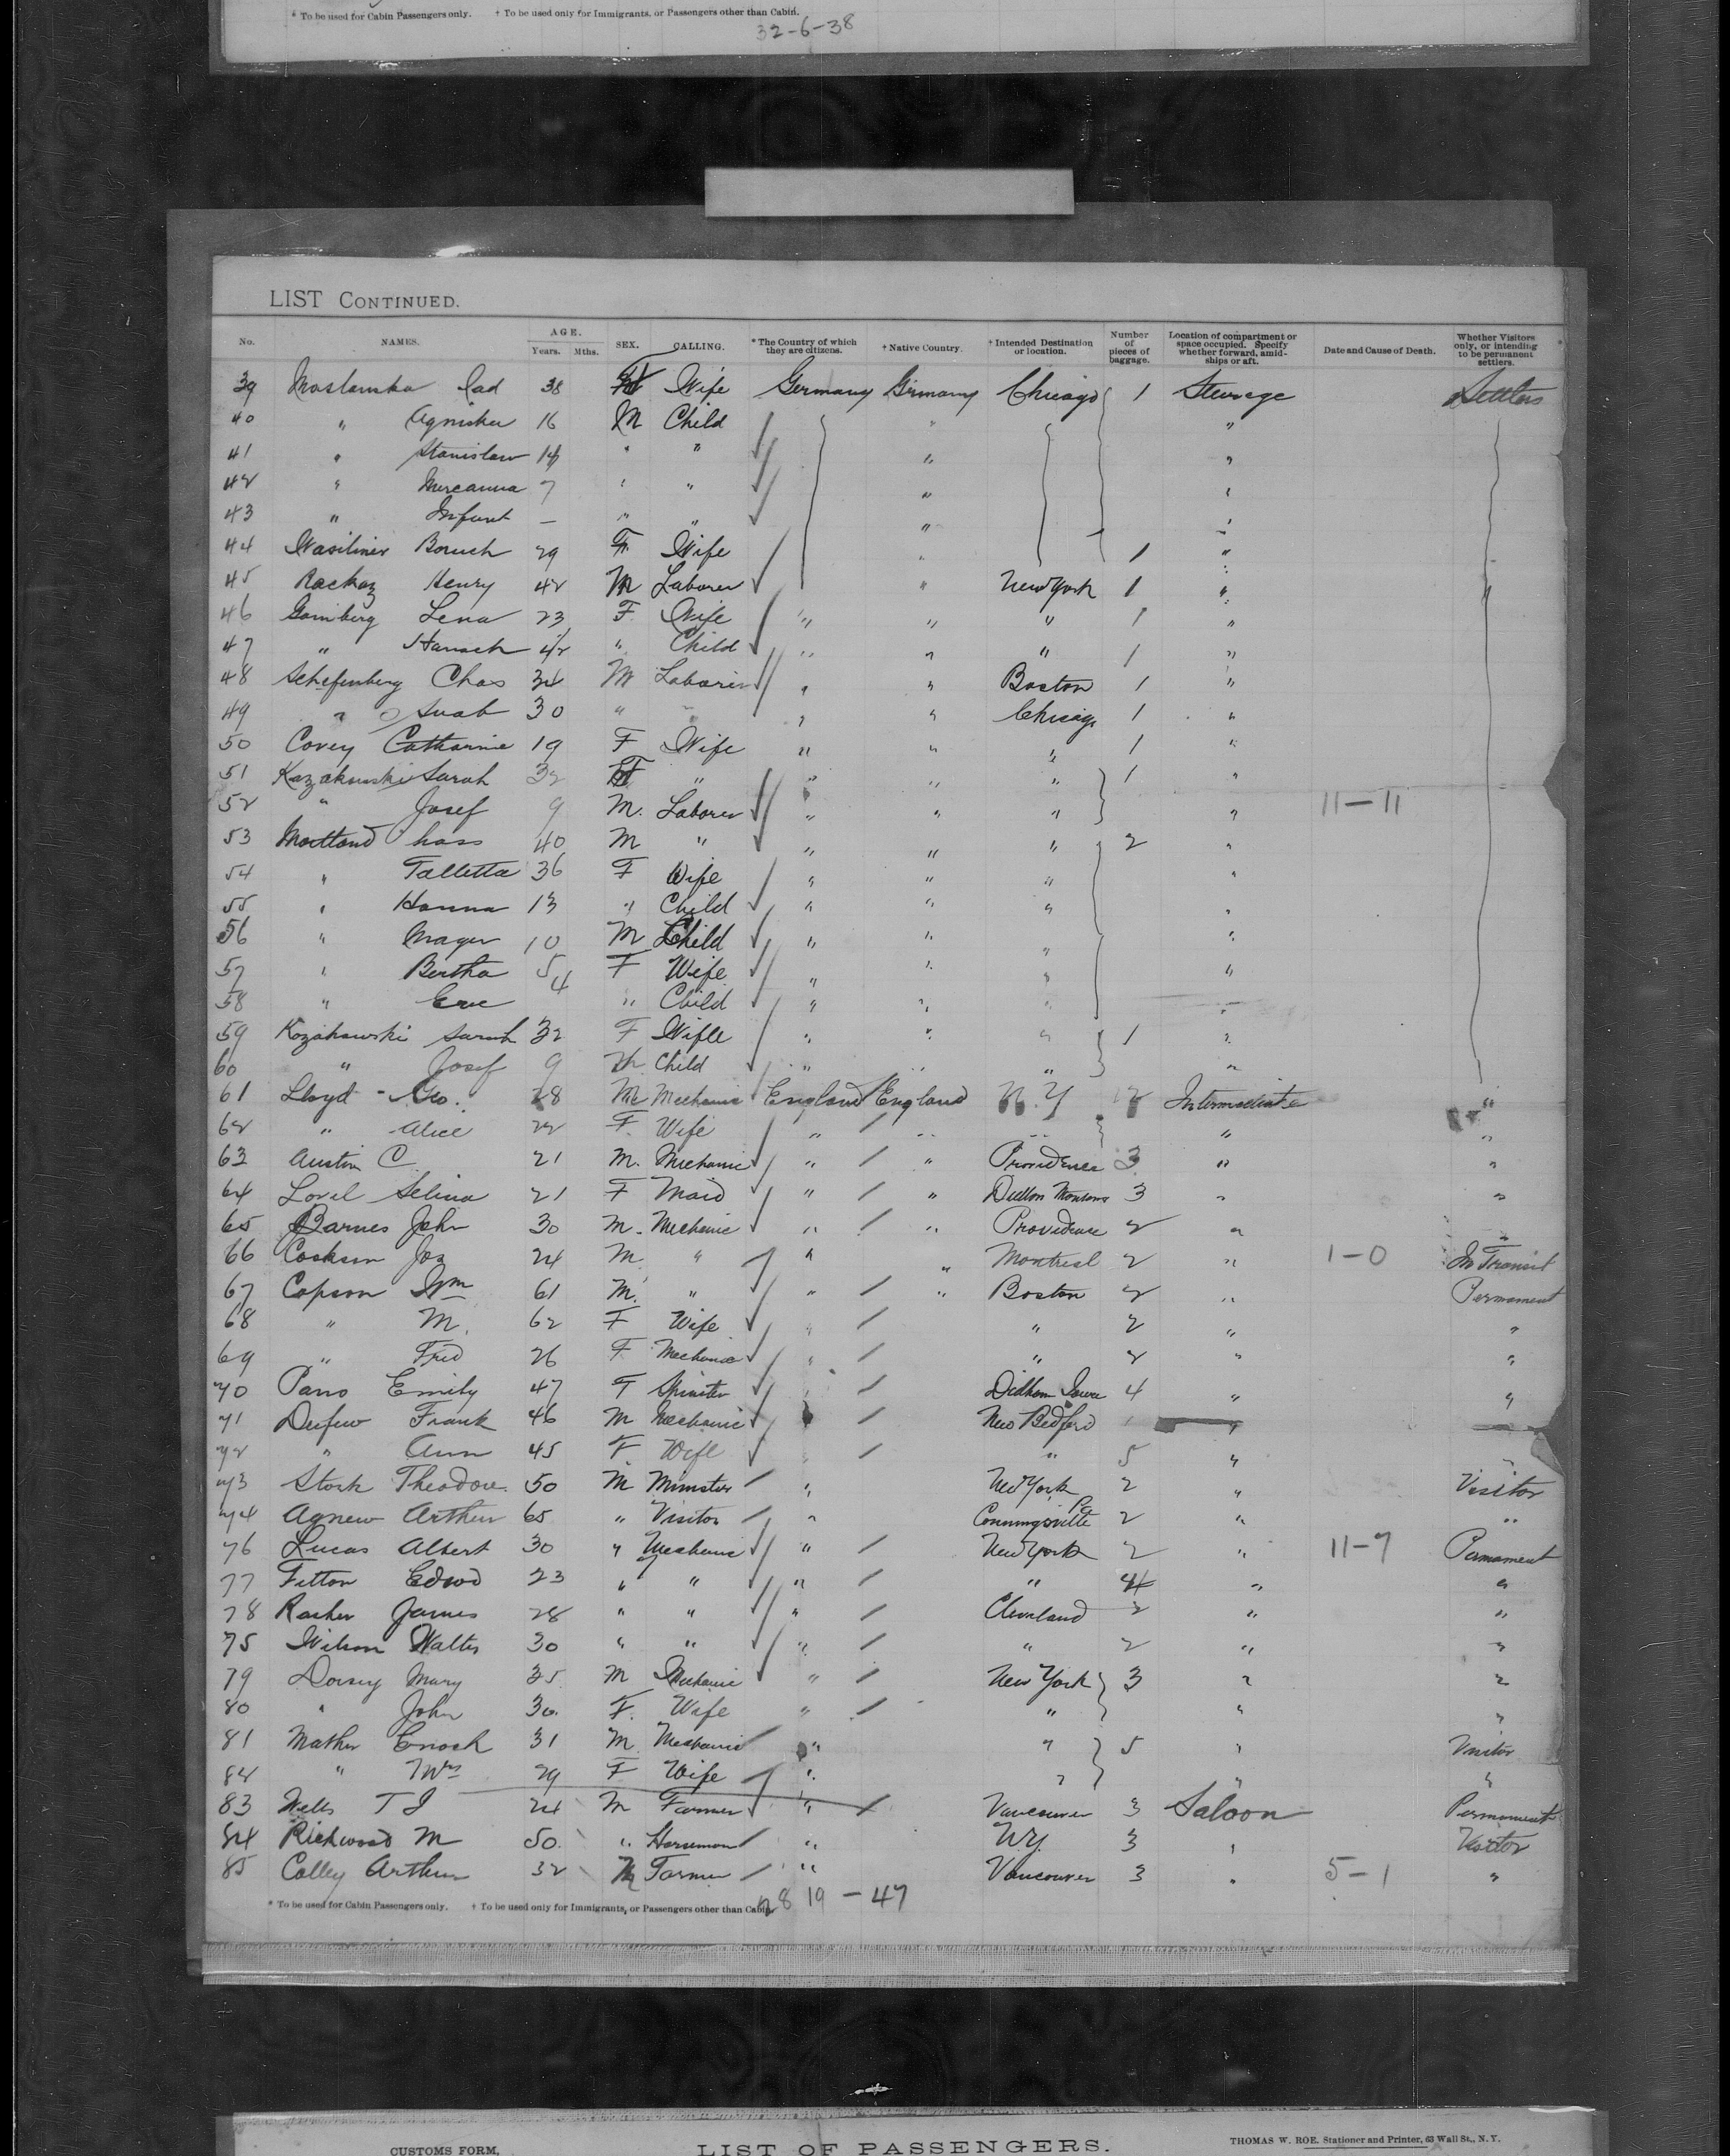 * To be used for Cabin Passengers only. † To be used only for Immigrants, or Passengers other than Cabin.
32-6-38
LIST CONTINUED.
No. NAMES. AGE. Years. Mths. SEX. CALLING. * The Country of which they are citizens. † Native Country. † Intended Destination or location. Number of pieces of baggage. Location of compartment or space occupied. Specify whether forward, amidships or aft. Date and Cause of Death. Whether Visitors only, or intending to be permanent settlers.
39 38 Wife Germany Germany Chicago 1 Steerage Settlers
40 " Agnisher 16 M Child " "
41 " Stanislaw 14 " " " "
42 " 7 " " " "
43 " Infant — " " " "
44 Boruch 29 F. Wife " 1 "
45 Rackaz Henry 42 M Laborer " New York 1 "
46 Lena 23 F. Wife " " " 1 "
47 " " Child " " " 1 "
48 Chas 34 M Laborer " " Boston 1 "
49 " 30 " " " " Chicago 1 "
50 Covey Catharine 19 F Wife " " " 1 "
51 Kazakowski Sarah 32 F " " " " 1 "
52 " Josef 9 M. Laborer " " " " 11-11
53 40 M " " " " 2 "
54 " Talletta 36 F Wife " " " "
55 " Hanna 13 " Child " " " "
56 " Mager 10 M Child " " " "
57 " Bertha 5 F Wife " " " "
58 " Eve 4 " Child " " " "
59 Kozakowski Sarah 32 F Wifle " " " 1 "
60 " Josef 9 M Child " " " "
61 Lloyd - Geo. 28 M Mechanic England England N.Y Intermediate "
62 " Alice 22 F. Wife " " " " "
63 Austin C 21 M. Mechanic " " Providence 3 " "
64 Lovel Selina 21 F Maid " " Dillon Montana 3 " "
65 Barnes John 30 M. Mechanic " " Providence 2 " "
66 Jos 24 M. " " " Montreal 2 " 1-0 In Transit
67 Capson Wm 61 M. " " " Boston 2 " Permament
68 " M. 62 F Wife " " 2 " "
69 " Fred 26 F. Mechanic " " 2 " "
70 Emily 47 F Spinster " 4 " "
71 Frank 46 M Mechanic New Bedford "
72 " Ann 45 F Wife " " 5 " "
73 Stork Theodore 50 M Minister " New York 2 " Visitor
74 Agnew Arthur 65 " Visitor " Pa 2 " "
76 Lucas Albert 30 " Mechanic " New York 2 " 11-7 Permament
77 Fitton Edwd 23 " " " " 4 " "
78 James 28 " " " Cleveland 2 " "
75 Wilson Walter 30 " " " " 2 " "
79 Dorsey Mary 35 M Mechanic " New York 3 " "
80 " John 30. F. Wife " " " "
81 Mather Enoch 31 M. Mechanic " " 5 " Visitor
82 " Mrs 29 F Wife " " " "
83 Wells T J 24 M Farmer " Vancouver 3 Saloon Permament
84 Richwood M 50. " Horseman " NY. 3 " Visitor
85 Colley Arthur 32 M Farmer " Vancouver 3 " 5-1 "
* To be used for Cabin Passengers only. † To be used only for Immigrants, or Passengers other than Cabin.
28 19 - 47
CUSTOMS FORM, LIST OF PASSENGERS. THOMAS W. ROE, Stationer and Printer, 63 Wall St., N. Y.